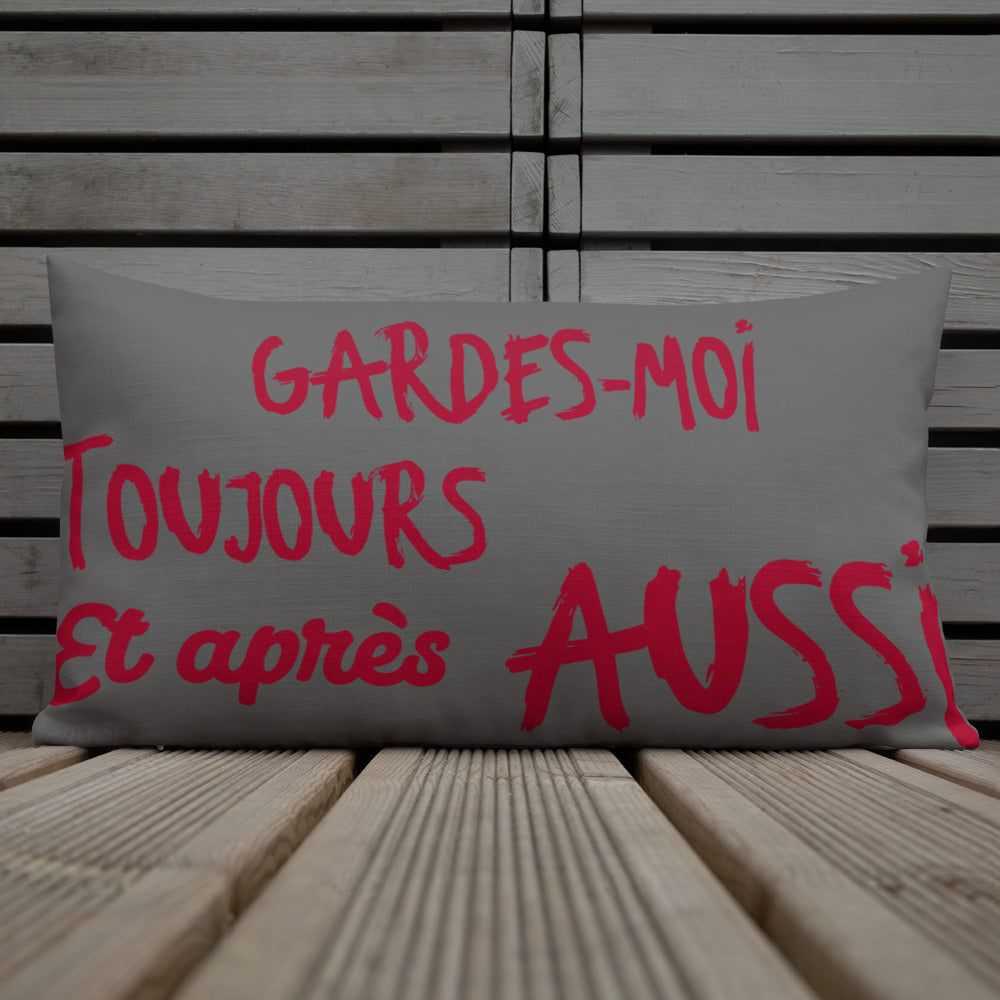 GARDES-MOi
TOUJOURS
Et après AUSSi